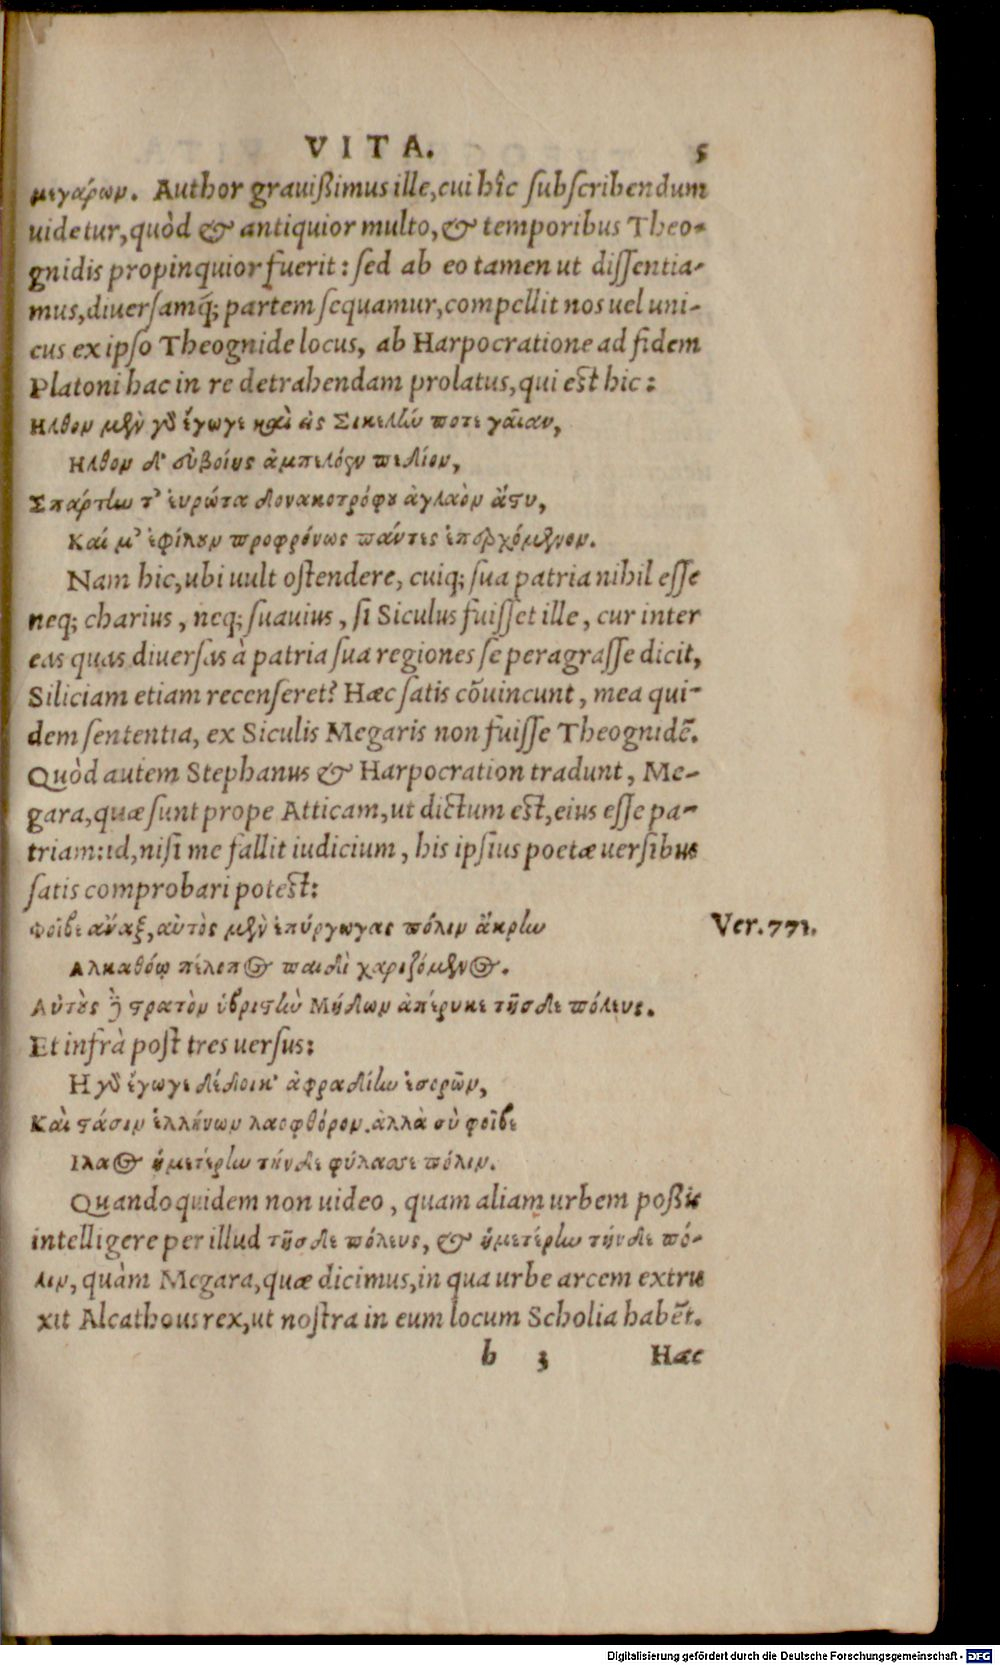 VITA. 5
μεγάρων. Author grauißimus ille, cui hîc subscribendum
uidetur, quòd & antiquior multo, & temporibus Theo-
gnidis propinquior fuerit: sed ab eo tamen ut dissentia-
mus, diuersamq́; partem sequamur, compellit nos uel uni-
cus ex ipso Theognide locus, ab Harpocratione ad fidem
Platoni hac in re detrahendam prolatus, qui est hic:
Ηλθον μὲν γὸ ἔγωγε καὶ εἰς Σικελὴν ποτε γαῖαν,
Ηλθον δ' εὐβοίης ἀμπελόεν πεδίον,
Σπάρτην τ' εὐρώτα δονακοτρόφου ἀγλαὸν ἄστυ,
Καί μ' ἐφίλουν προφρόνως πάντες ἐπερχόμενον.
Nam hic, ubi uult ostendere, cuiq; sua patria nihil esse
neq; charius, neq; suauius, si Siculus fuisset ille, cur inter
eas quas diuersas à patria sua regiones se peragrasse dicit,
Siliciam etiam recenseret? Hæc satis cōuincunt, mea qui-
dem sententia, ex Siculis Megaris non fuisse Theognidē.
Quòd autem Stephanus & Harpocration tradunt, Me-
gara, quæ sunt prope Atticam, ut dictum est, eius esse pa-
triam: id, nisi me fallit iudicium, his ipsius poetæ uersibus
satis comprobari potest:
Φοῖβε ἄναξ, αὐτὸς μὲν ἐπύργωσας πόλιν ἄκρην Ver. 771.
Αλκαθόῳ πέλοπος παιδὶ χαριζόμενος.
Αὐτὸς δὲ στρατὸν ὑβριστὴν Μήδων ἀπέρυκε τῆσδε πόλευς.
Et infrà post tres uersus:
Η γὸ ἔγωγε δέδοικ' ἀφραδίην ἐσορῶν,
Καὶ στάσιν ἑλλήνων λαοφθόρον. ἀλλὰ σὺ φοῖβε
Ιλαος ἡμετέρην τήνδε φύλασσε πόλιν.
Quandoquidem non uideo, quam aliam urbem poßis
intelligere per illud τῆσδε πόλευς, & ἡμετέρην τήνδε πό-
λιν, quàm Megara, quæ dicimus, in qua urbe arcem extru
xit Alcathous rex, ut nostra in eum locum Scholia habēt.
b 3 Hæc
Digitalisierung gefördert durch die Deutsche Forschungsgemeinschaft - DFG